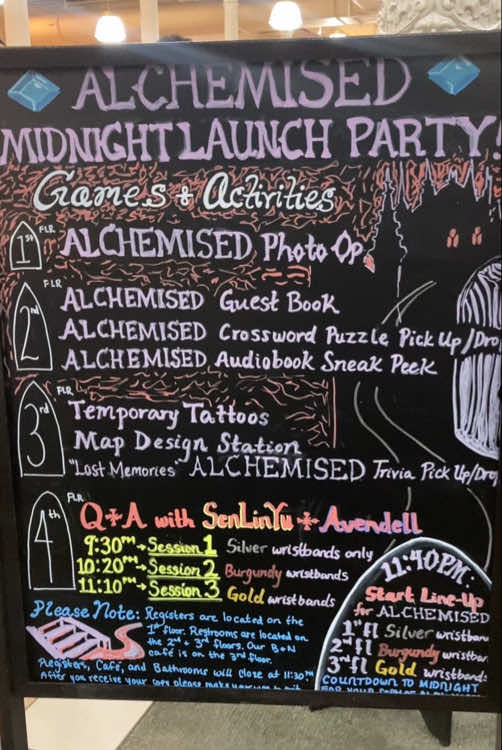 ALCHEMISED
MIDNIGHT LAUNCH PARTY
Games + Activities
1st FLR
ALCHEMISED Photo Op
2nd FLR
ALCHEMISED Guest Book
ALCHEMISED Crossword Puzzle Pick Up/Dro
ALCHEMISED Audiobook Sneak Peek
3rd FLR
Temporary Tattoos
Map Design Station
"Lost Memories" ALCHEMISED Trivia Pick Up/Dro
4th FLR
Q+A with SenLinYu + Avendell
9:30PM - Session 1 Silver wristbands only
10:20PM - Session 2 Burgundy wristbands
11:10PM - Session 3 Gold wristbands
Please Note: Registers are located on the
1st floor. Restrooms are located on
the 2nd + 3rd floors. Our B+N
Café is on the 3rd floor.
Registers, Café, and Bathrooms will close at 11:30PM
After you receive your copy please make your way to
11:40PM:
Start Line-Up
for ALCHEMISED
1st fl Silver wristban
2nd fl Burgundy wristban
3rd fl Gold wristbands
COUNTDOWN TO MIDNIGHT
FOR YOUR COPY OF